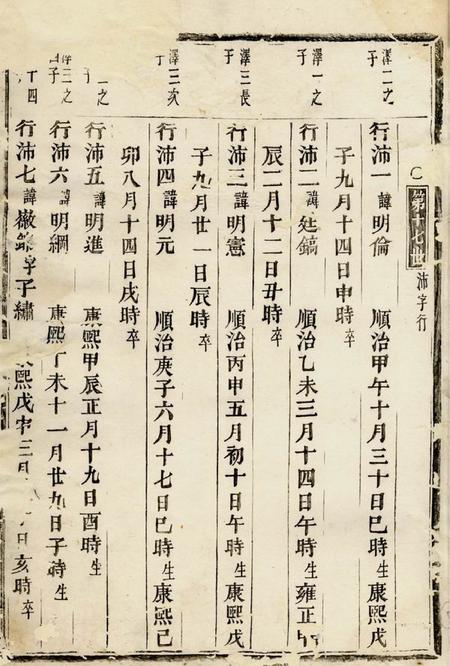 第十七世 沛字行
澤二之子 行沛一諱明倫 順治甲午十月三十日巳時生康熙戊
子九月十四日申時卒
澤一之子 行沛二諱廷鎬 順治乙未三月十四日午時生雍正
辰二月十二日丑時卒
澤三長子 行沛三諱明憲 順治丙申五月初十日午時生康熙戊
子九月廿一日辰時卒
澤三次子 行沛四諱明元 順治庚子六月十七日巳時生康熙己
卯八月十四日戌時卒
之 行沛五諱明進 康熙甲辰正月十九日酉時生
之子 行沛六諱明綱 康熙丁未十一月廿九日子時生
四 行沛七諱 字子繡 熙戊申三月 日亥時卒